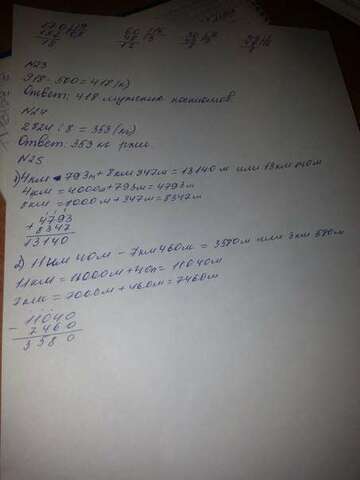 N23
918-500=418(к)
Ответ: 418 мужских костюмов.
N24
2824:8=353(кг)
Ответ: 353 кг ржи.
N25
1) 4км 793м+8км 347м=13140м или 13км 140м
4км=4000м+793м=4793м
8км=8000м+347м=8347м
4793
+ 8347
13140
2) 11км 40м-7км 460м=3580м или 3км 580м
11км=11000м+40м=11040м
7км=7000м+460м=7460м
11040
- 7460
3580